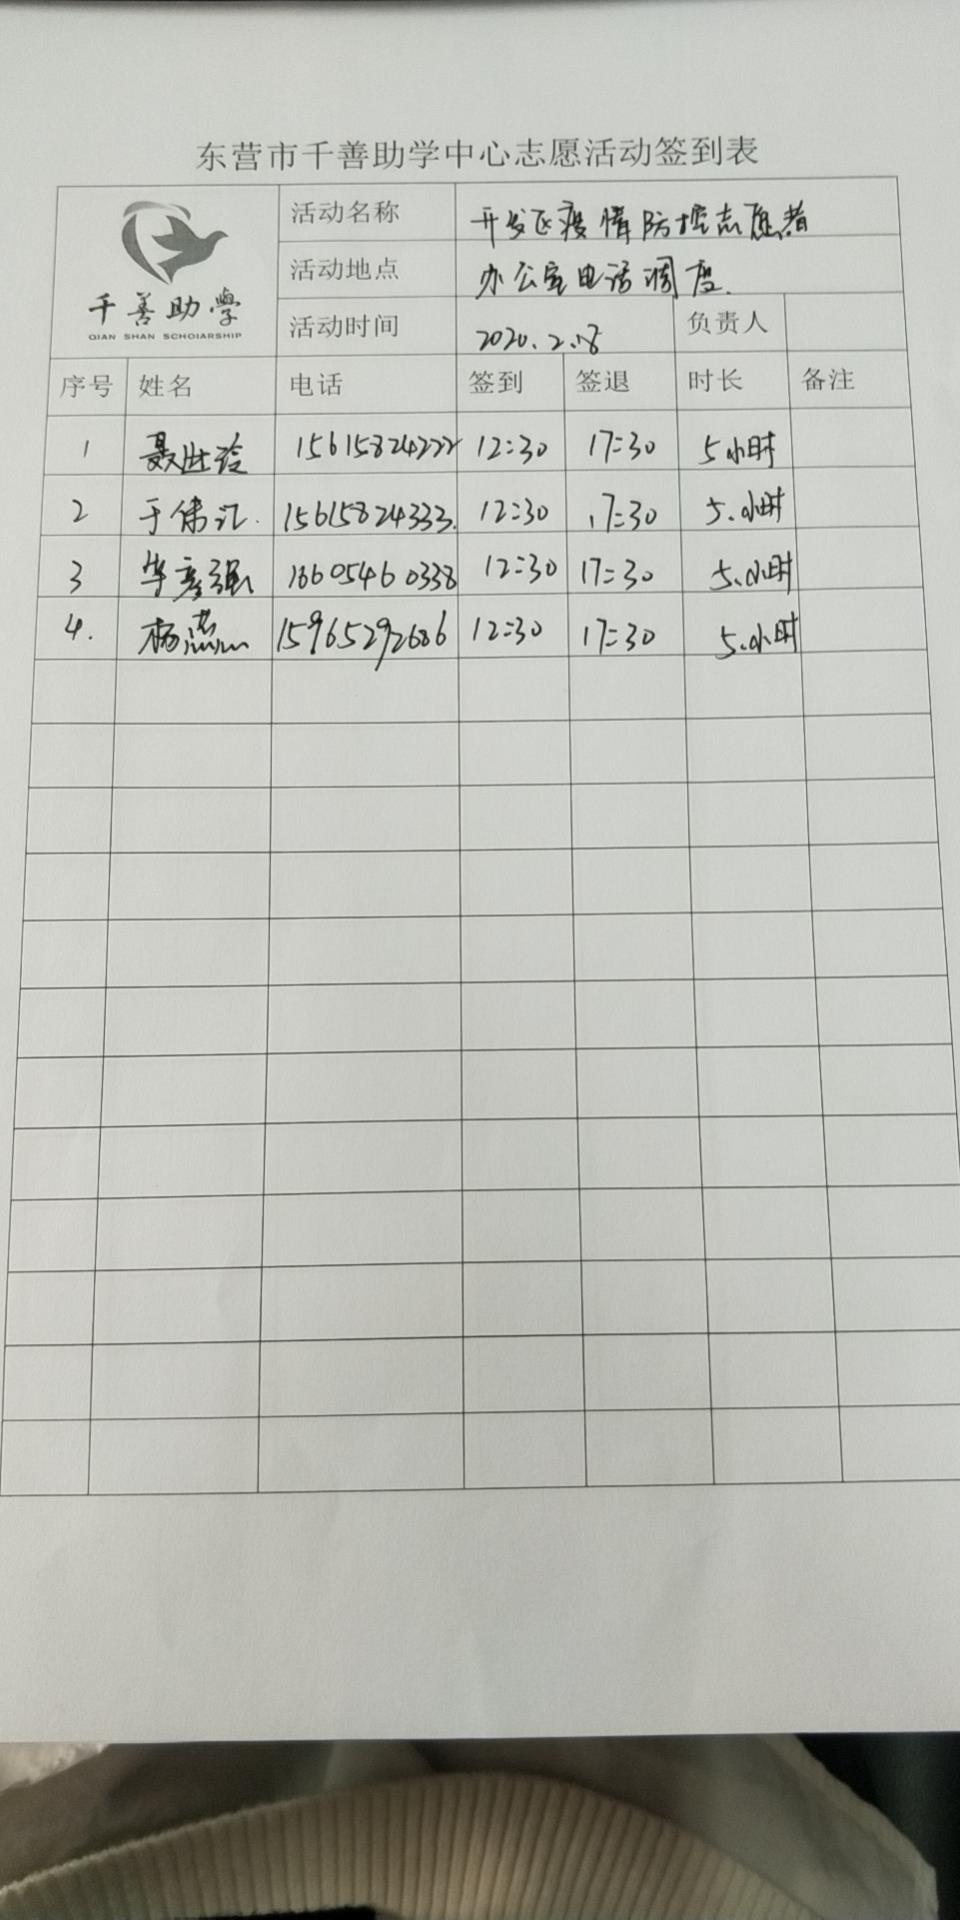 东营市千善助学中心志愿活动签到表
千善助學
QIAN SHAN SCHOIARSHIP
活动名称 开发区疫情防控志愿者
活动地点 办公室电话调度.
活动时间 2020.2.18 负责人
序号 姓名 电话 签到 签退 时长 备注
1 聂胜玲 15615824222 12:30 17:30 5小时
2 于伟汇. 15615824333. 12:30 17:30 5.小时
3 华彦强 18605460338 12:30 17:30 5.小时
4. 杨燕 15965292686 12:30 17:30 5.小时